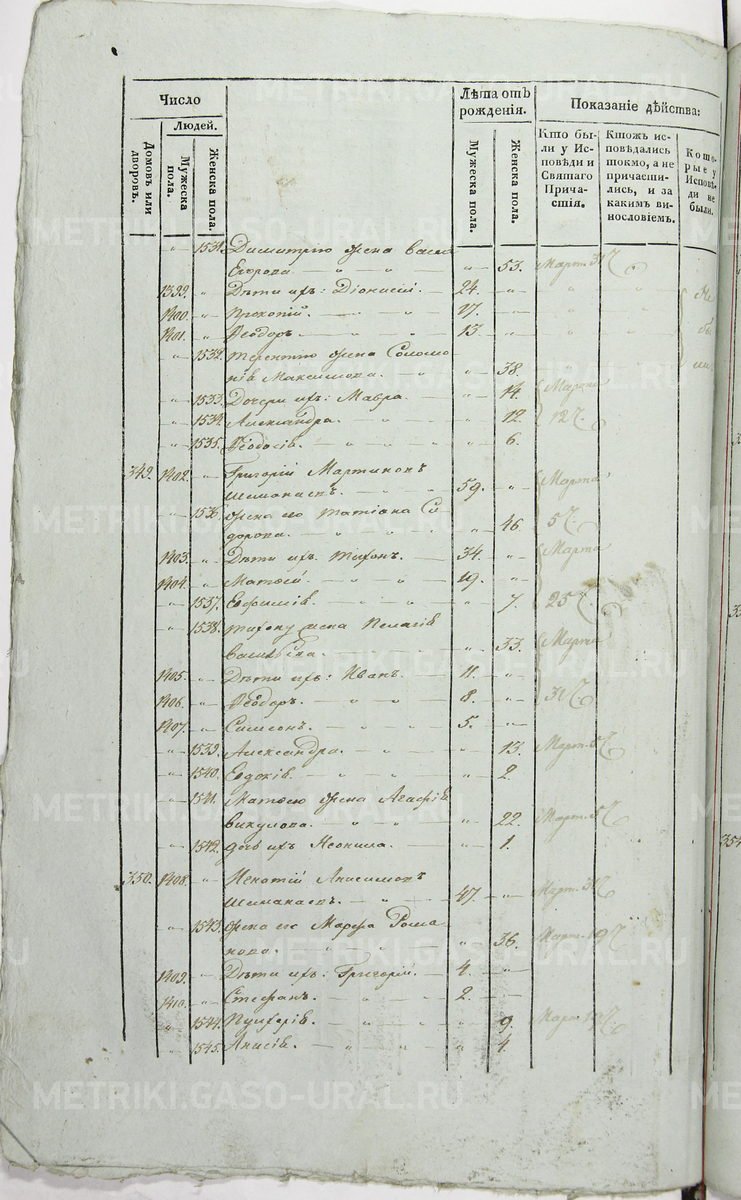 Число
Людей.
Домовъ или дворовъ.
Мужеска пола.
Женска пола.
Лѣта отъ рожденія.
Мужеска пола.
Женска пола.
Показаніе дѣйства:
Кто были у Исповѣди и Святаго Причастія.
Ктожъ исповѣдались токмо, а не причастились, и за какимъ винословіемъ.
Которые у Исповѣди не были.
" 1531. Димитрію жена
Егорова " 53. Март.
1399. " Дѣти ихъ: Діонисій. 24. " Не
1400. " Прокопій. 17. "
1401. " Ѳеодоръ. 13. "
" 1532. Терентію жена Соломо
нія Максимова. " 38.
" 1533. Дочери ихъ: Мавра. " 14. Марта
" 1534. Александра. " 12. 12
" 1535. Ѳеодосія. " 6.
349. 1402. " Григорій Мартиновъ
59. " Марта
" 1536. Жена его Татіана Си
дорова. " 46. 5
1403. " Дѣти ихъ Тихонъ. 34. " Марта
1404. " Матѳей. 19. "
" 1537. Евфимія. " 7. 25
" 1538. Тихону жена Пелагія
Васильева. " 33. Марта
1405. " Дѣти ихъ: Иванъ. 11. "
1406. " Ѳеодоръ. 8. " 31
1407. " Симеонъ. 5. "
" 1539. Александра. " 13. Март.
" 1540. Евдокія. " 2.
" 1541. Матѳею жена Агафія
Викулова. " 22. Март.
" 1542. дочь ихъ Неонила. " 1.
350. 1408. " Игнатій Анисимовъ
47. " Март.
" 1543. Жена его Марфа Рома
нова. " 36. Март. 19
1409. " Дѣти ихъ: Григорій. 4. "
1410. " Стефанъ. 2. "
" 1544. " 9. Март.
" 1545. Анисія. " 4.
METRIKI.GASO-URAL.RU